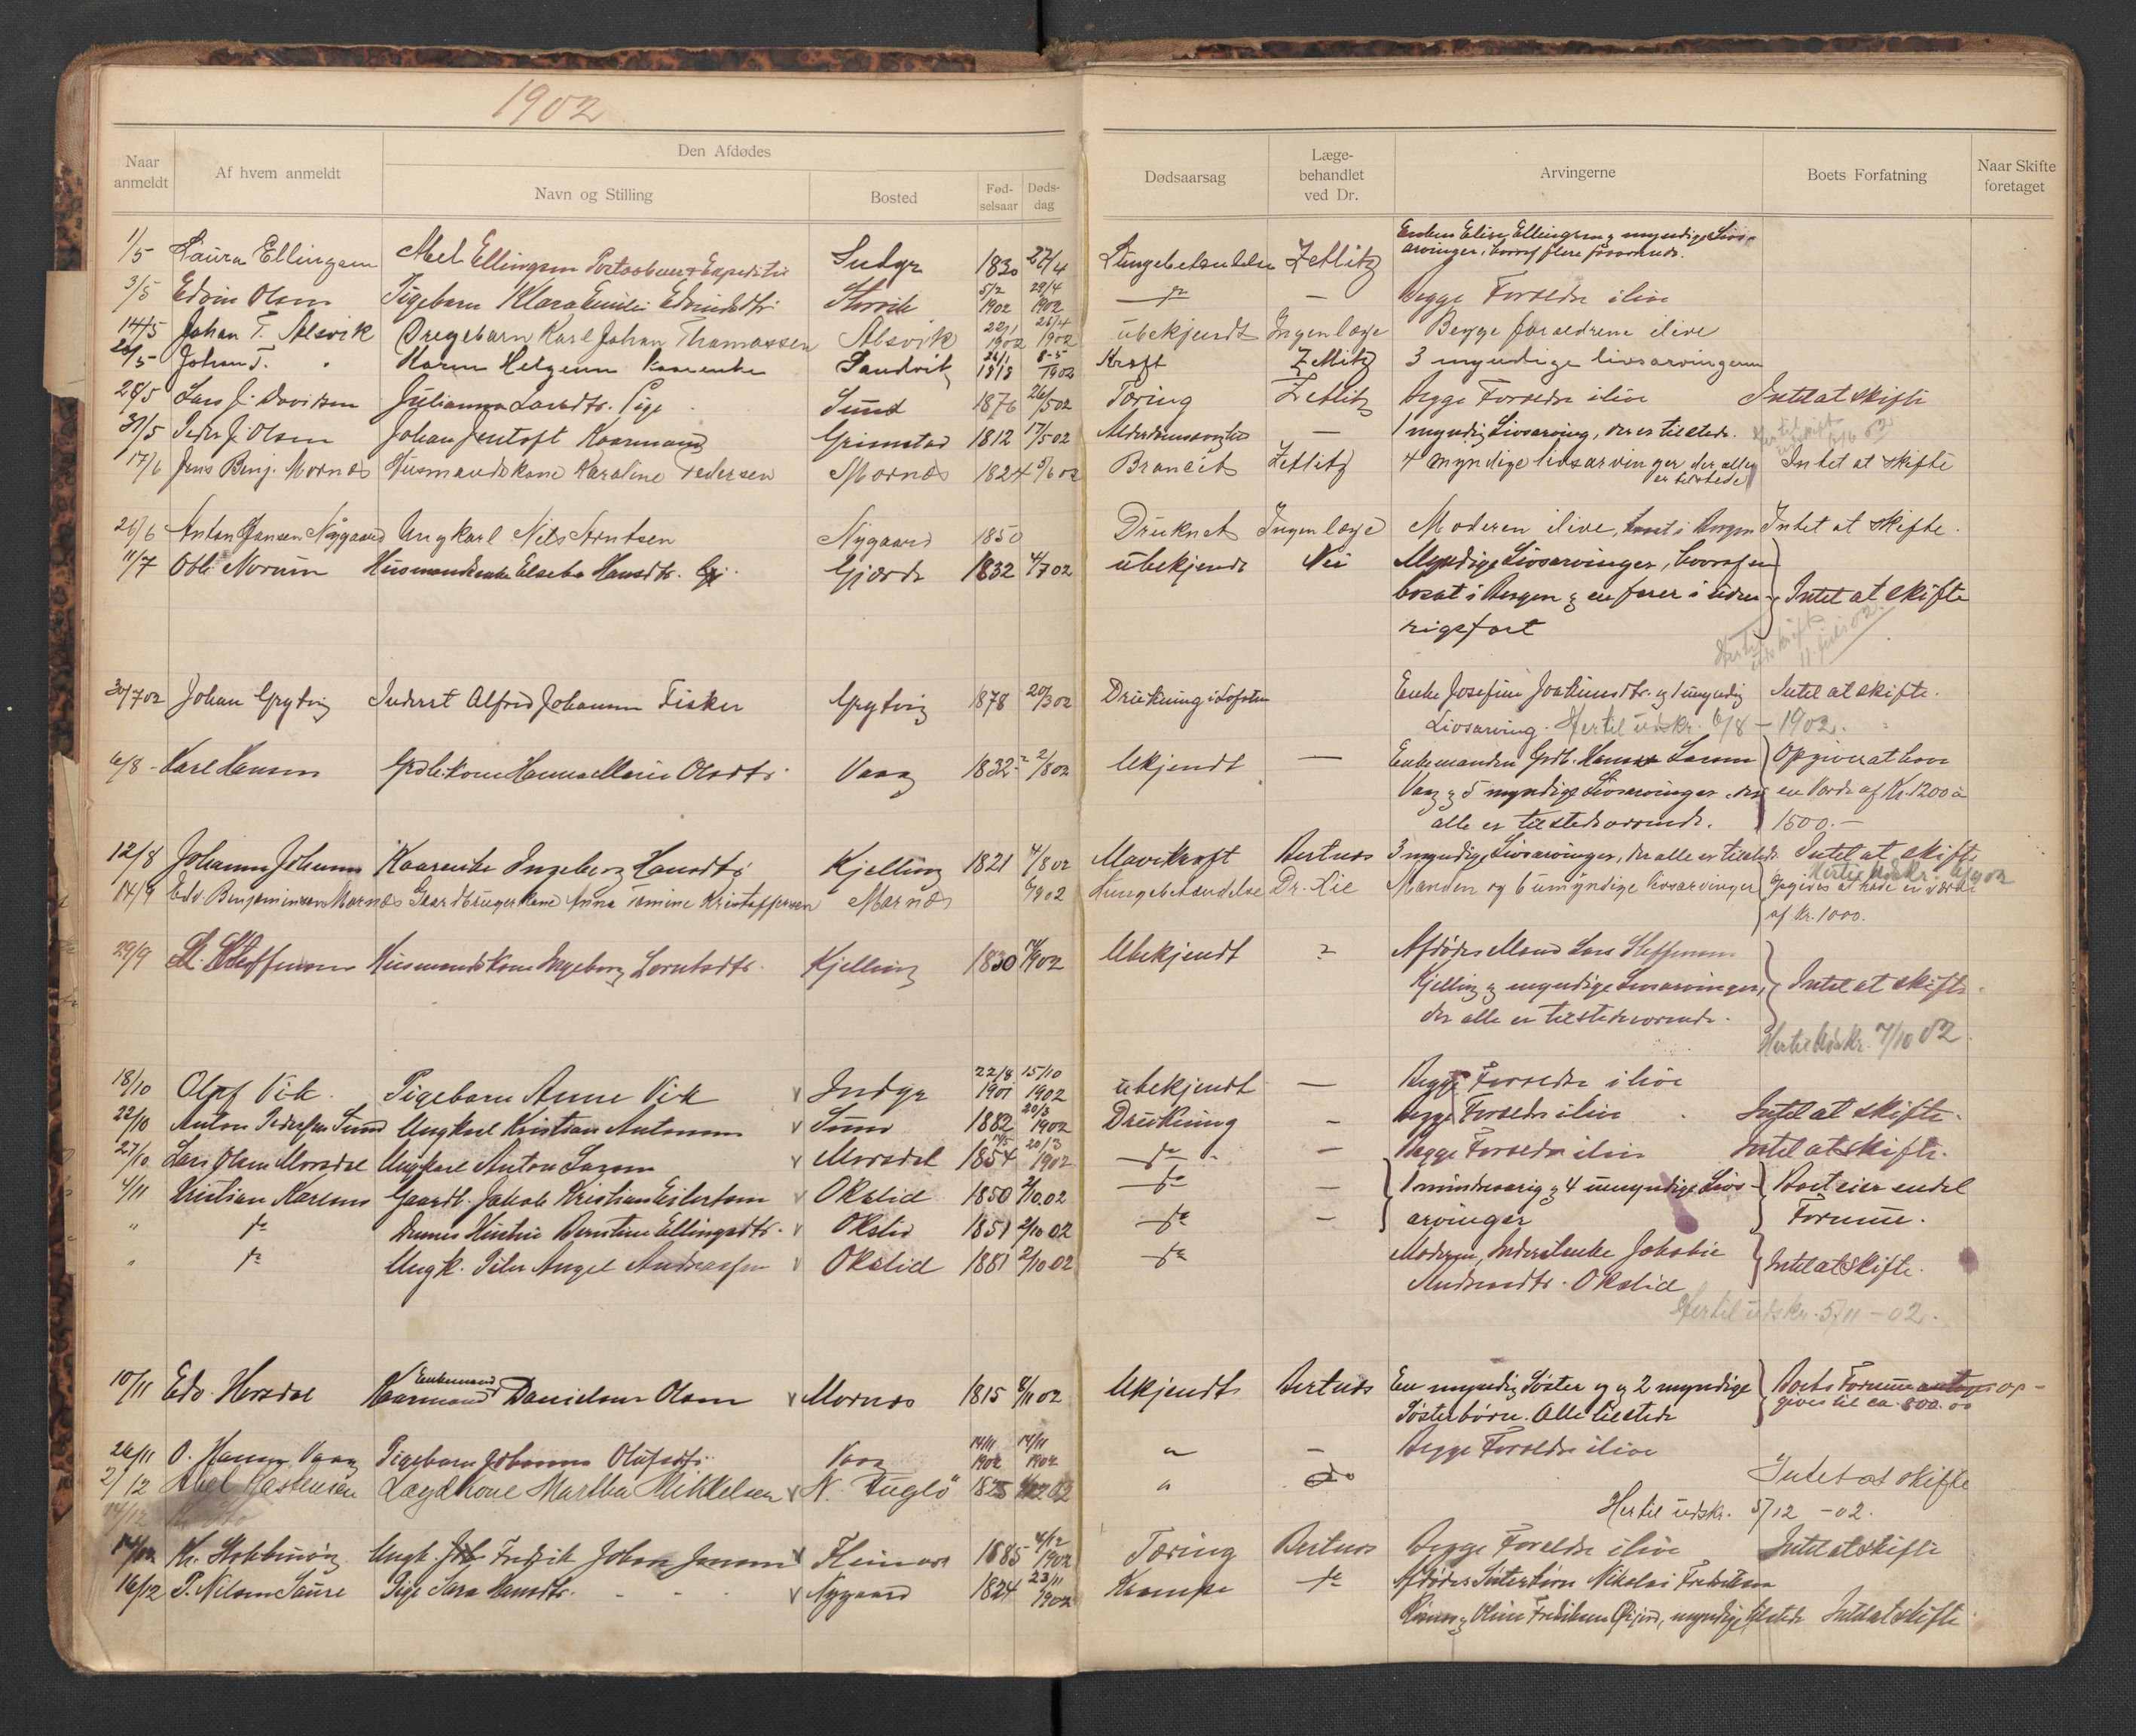 1902
Naar anmeldt
Af hvem anmeldt
Den Afdødes
Navn og Stilling
Bosted
Fød-selsaar
Døds-dag
Dødsaarsag
Læge-behandlet ved Dr.
Arvingerne
Boets Forfatning
Naar Skifte foretaget
1/5 Laura Ellingsen Abel Ellingsen Indyr 1830 27/4 Zetlitz Enken Elise Ellingsen & myndige Livs-
arvinger, hvoraf flere
3/5 Edvin Olsen Pigebarn Klara Emilie Edvinsdtr. Storvik 5/2 1902 29/4 1902 — Begge Forældre ilive
14/5 Johan T. Alsvik Dregebarn Karl Johan Thomassen Alsvik 22/1 1902 25/4 1902 ubekjendt Ingen læge Begge foraeldrene ilive
20/5 Johan T. " Karen Helgesen Sandvik 1818 8-5 1902 Kræft Zetlitz 3 myndige livsarvingerne
28/5 Lars J. Davidsen Julianna Larsdtr. Pige Sund 1876 26/5 02 Tæring Zetlitz Begge Forældre ilive Intet at skifte
31/5 Peder J. Olsen Johan Jentoft Kaarmand Grimstad 1812 17/5 02 — 1 myndig Livsarving, der er tilstede.
17/6 Jens Benj. Mornæs Husmandskone Karoline Pedersen Mornæs 1824 5/6 02 Zetlitz 4 myndige livsarvinger der alle er tilstede Intet at skifte
26/6 Anton Hansen Nygaard Ungkarl Nils Arntsen Nygaard 1850 Druknet Ingen læge Moderen ilive, i Bergen Intet at skifte.
11/7 Otto Norum Husmandsenke Elseba Hansdtr. Gjærde 1832 4/7 02 ubekjendt Nei Myndige Livsarvinger, hvoraf en
bosat i Bergen & en farer i uden- Intet at skifte
rigsfart
Hertil udskrift 11. juli 02.
30/7 02 Johan Grytvig Inderst Alfred Johansen Fisker Grytvig 1878 20/3 02 Drukning i Lofoten Enke Josefine Joakimsdtr. og 1 umyndig Intet at skifte.
Livsarving. Hertil udskr. 6/8 – 1902.
6/8 Karl Hansen Grdb. kone Hanna Marie Olsdtr. Vaag 1832 2/8 02 Ukjendt — Enkemanden Grdb. Hans Larsen Opgiver at have
Vaag & 5 myndige Livsarvinger, der en Værdi af Kr. 1200 à
alle er tilstedeværende. 1500.–
12/8 Johannes Johansen Kaarenke Ingeborg Hansdtr. Kjelling 1821 4/8 02 Mavekræft Bertnæs 3 myndige Livsarvinger, der alle er tilstede. Intet at skifte
14/9 Edv. Benjaminsen Marnæs Gaardbrugerkone Anna Tomine Kristoffersen Marnæs Lungebetændelse Dr. Lie Manden og 6 umyndige livsarvinger Opgives at have en værdi
af Kr. 1000.
29/9 L. Steffensen Husmandskone Ingeborg Lorntsdtr. Kjelling 1830 Ubekjendt Afdødes Mand Lars Steffensen
Kjelling & myndige Livsarvinger, Intet at skifte.
der alle er tilstedeværende.
Hertil Udskr. 7/10 02
18/10 Olaf Vik Pigebarn Anne Vik Indyr 22/8 1901 15/10 1902 ubekjendt — Begge Forældre ilive
22/10 Anton Pedersen Sund Ungkarl Kristian Antonsen Sund 1882 20/3 1902 Drukning – Begge Forældre ilive Intet at skifte.
27/10 Lars Olsen Morsdal Ungkarl Anton Larsen Morsdal 1854 20/3 1902 do – Begge Forældre ilive Intet at skifte.
4/11 Kristian Karlsen Gaardb. Jakob Kristian Eilertsen Okslid 1850 2/10 02 do – 1 mindreaarig & 4 umyndige Livs- Boet eier endel
" do Dennes Hustru Berntine Ellingsdtr. Okslid 1851 2/10 02 do – arvinger Formue.
" do Ungk. Peter Angel Andreassen Okslid 1881 2/10 02 do Moderen, Inderstenke Jakobie Intet at skifte.
Andreasdtr. Okslid
Hertil udskr. 5/11 – 02.
10/11 Edv. Horsdal Enkemand Kaarmand Danielsen Olsen Mornæs 1815 8/11 02 Ukjendt Bertnæs En myndig Søster og 2 myndige Boets Formue antages op-
Søsterbørn. Alle tilstede gives til ca. 800.00
26/11 O. Hansen Vaag Pigebarn Johanna Olufsdtr. Vaag 14/11 1902 14/11 1902 " – Begge Forældre ilive
2/12 Abel Kastensen Lægdkone Martha Mikkelsen N. Fuglø " do Intet at skifte
Hertil udskr. 5/12 – 02.
14/12 Kr. Ungk. Fredrik Johan Jensen Fleinvær 1885 4/12 1902 Tæring Bertnæs Begge Forældre ilive Intet at skifte
16/12 P. Nilsen Saure Pige Sara Hansdtr. Nygaard 1824 23/11 1902 Krampe do Afdødes Søsterbørn Nikolai Fredriksen
& Oline Fredriksen , myndige tilstede Intet at skifte